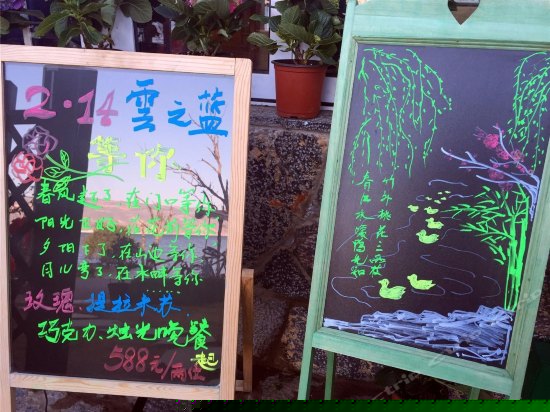 2.14 雲之蓝
等你
春风起了,在门口等你
阳光
夕阳下了,在山边等你
月儿弯了,在水畔等你
玫瑰、提拉米苏
巧克力、烛光晚餐
588元/两位
起
竹外桃花三两枝
春江水暖鸭先知